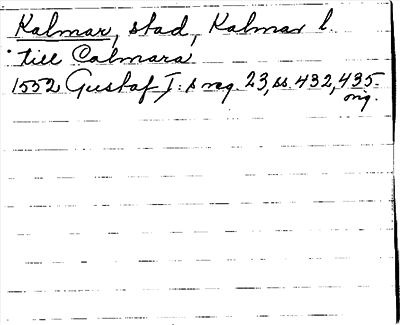 Kalmar, stad, Kalmar l.
till Calmara
1552 Gustaf I:s reg. 23, ss. 432, 435
orig.